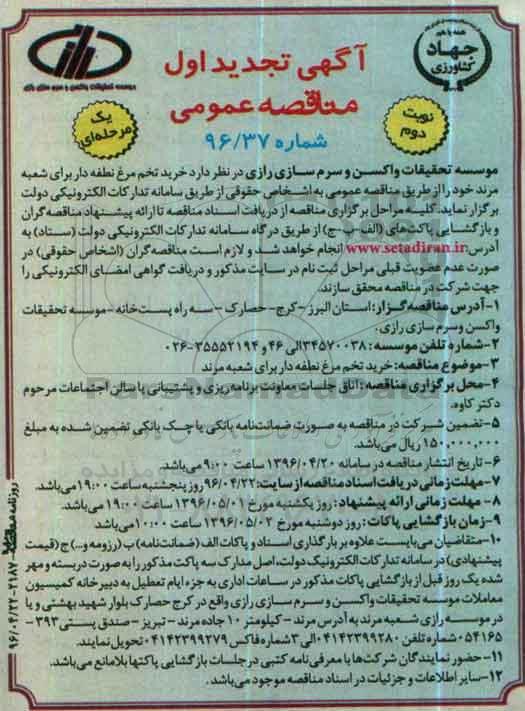 همه با هم
جهاد
کشاورزی
موسسه تحقیقات واکسن و سرم سازی رازی
آگهی تجدید اول
مناقصه عمومی
شماره ۹۶/۳۷
نوبت
دوم
یک
مرحله‌ای
موسسه تحقیقات واکسن و سرم سازی رازی در نظر دارد خرید تخم مرغ نطفه دار برای شعبه
مرند خود را از طریق مناقصه عمومی به اشخاص حقوقی از طریق سامانه تدارکات الکترونیکی دولت
برگزار نماید. کلیه مراحل برگزاری مناقصه از دریافت اسناد مناقصه تا ارائه پیشنهاد مناقصه گران
و بازگشایی پاکت‌های (الف-ب-ج) از طریق درگاه سامانه تدارکات الکترونیکی دولت (ستاد) به
آدرس: www.setadiran.ir انجام خواهد شد و لازم است مناقصه گران (اشخاص حقوقی) در
صورت عدم عضویت قبلی مراحل ثبت نام در سایت مذکور و دریافت گواهی امضای الکترونیکی را
جهت شرکت در مناقصه محقق سازند.
۱-آدرس مناقصه گزار: استان البرز -کرج- حصارک -سه راه پست‌خانه -موسسه تحقیقات
واکسن و سرم سازی رازی.
۲-شماره تلفن موسسه: ۳۴۵۷۰۰۳۸الی ۴۶ و ۳۵۵۵۲۱۹۴-۰۲۶
۳-موضوع مناقصه: خرید تخم مرغ نطفه دار برای شعبه مرند
۴-محل برگزاری مناقصه: اتاق جلسات معاونت برنامه ریزی و پشتیبانی یا سالن اجتماعات مرحوم
دکتر کاوه.
۵-تضمین شرکت در مناقصه به صورت ضمانت‌نامه بانکی یا چک بانکی تضمین شده به مبلغ
۱۵۰,۰۰۰,۰۰۰ ریال می‌باشد.
۶-تاریخ انتشار مناقصه در سامانه ۱۳۹۶/۰۴/۲۰ ساعت ۹:۰۰ می‌باشد.
۷-مهلت زمانی دریافت اسناد مناقصه از سایت: ۹۶/۰۴/۲۲ روز پنجشنبه ساعت ۱۹:۰۰ می‌باشد.
۸- مهلت زمانی ارائه پیشنهاد: روز یکشنبه مورخ ۱۳۹۶/۰۵/۰۱ ساعت ۱۹:۰۰ می‌باشد.
۹-زمان بازگشایی پاکات: روز دوشنبه مورخ ۱۳۹۶/۰۵/۰۲ ساعت ۱۰:۰۰ می‌باشد
۱۰-متقاضیان می‌بایست علاوه بر بارگذاری اسناد و پاکات الف (ضمانت‌نامه) ب (رزومه و...) ج (قیمت
پیشنهادی) در سامانه تدارکات الکترونیک دولت، اصل مدارک سه پاکت مذکور را به صورت دربسته و مهر
شده یک روز قبل از بازگشایی پاکات مذکور در ساعات اداری به جزء ایام تعطیل به دبیرخانه کمیسیون
معاملات موسسه تحقیقات واکسن و سرم سازی رازی واقع در کرج حصارک بلوار شهید بهشتی و یا
در موسسه رازی شعبه مرند به آدرس مرند - کیلومتر ۱۰ جاده مرند - تبریز - صندق پستی ۳۹۳-
۵۴۱۶۵ شماره تلفن ۰۴۱۴۲۳۹۹۲۸۰الی ۳ شماره فاکس ۰۴۱۴۲۳۹۹۲۷۹ تحویل نمایند.
۱۱-حضور نمایندگان شرکت‌ها با معرفی نامه کتبی در جلسات بازگشایی پاکتها بلامانع می‌باشد.
۱۲-سایر اطلاعات و جزئیات در اسناد مناقصه موجود می‌باشد.
۹۶/۰۴/۲۲ - ۲۱۸۷